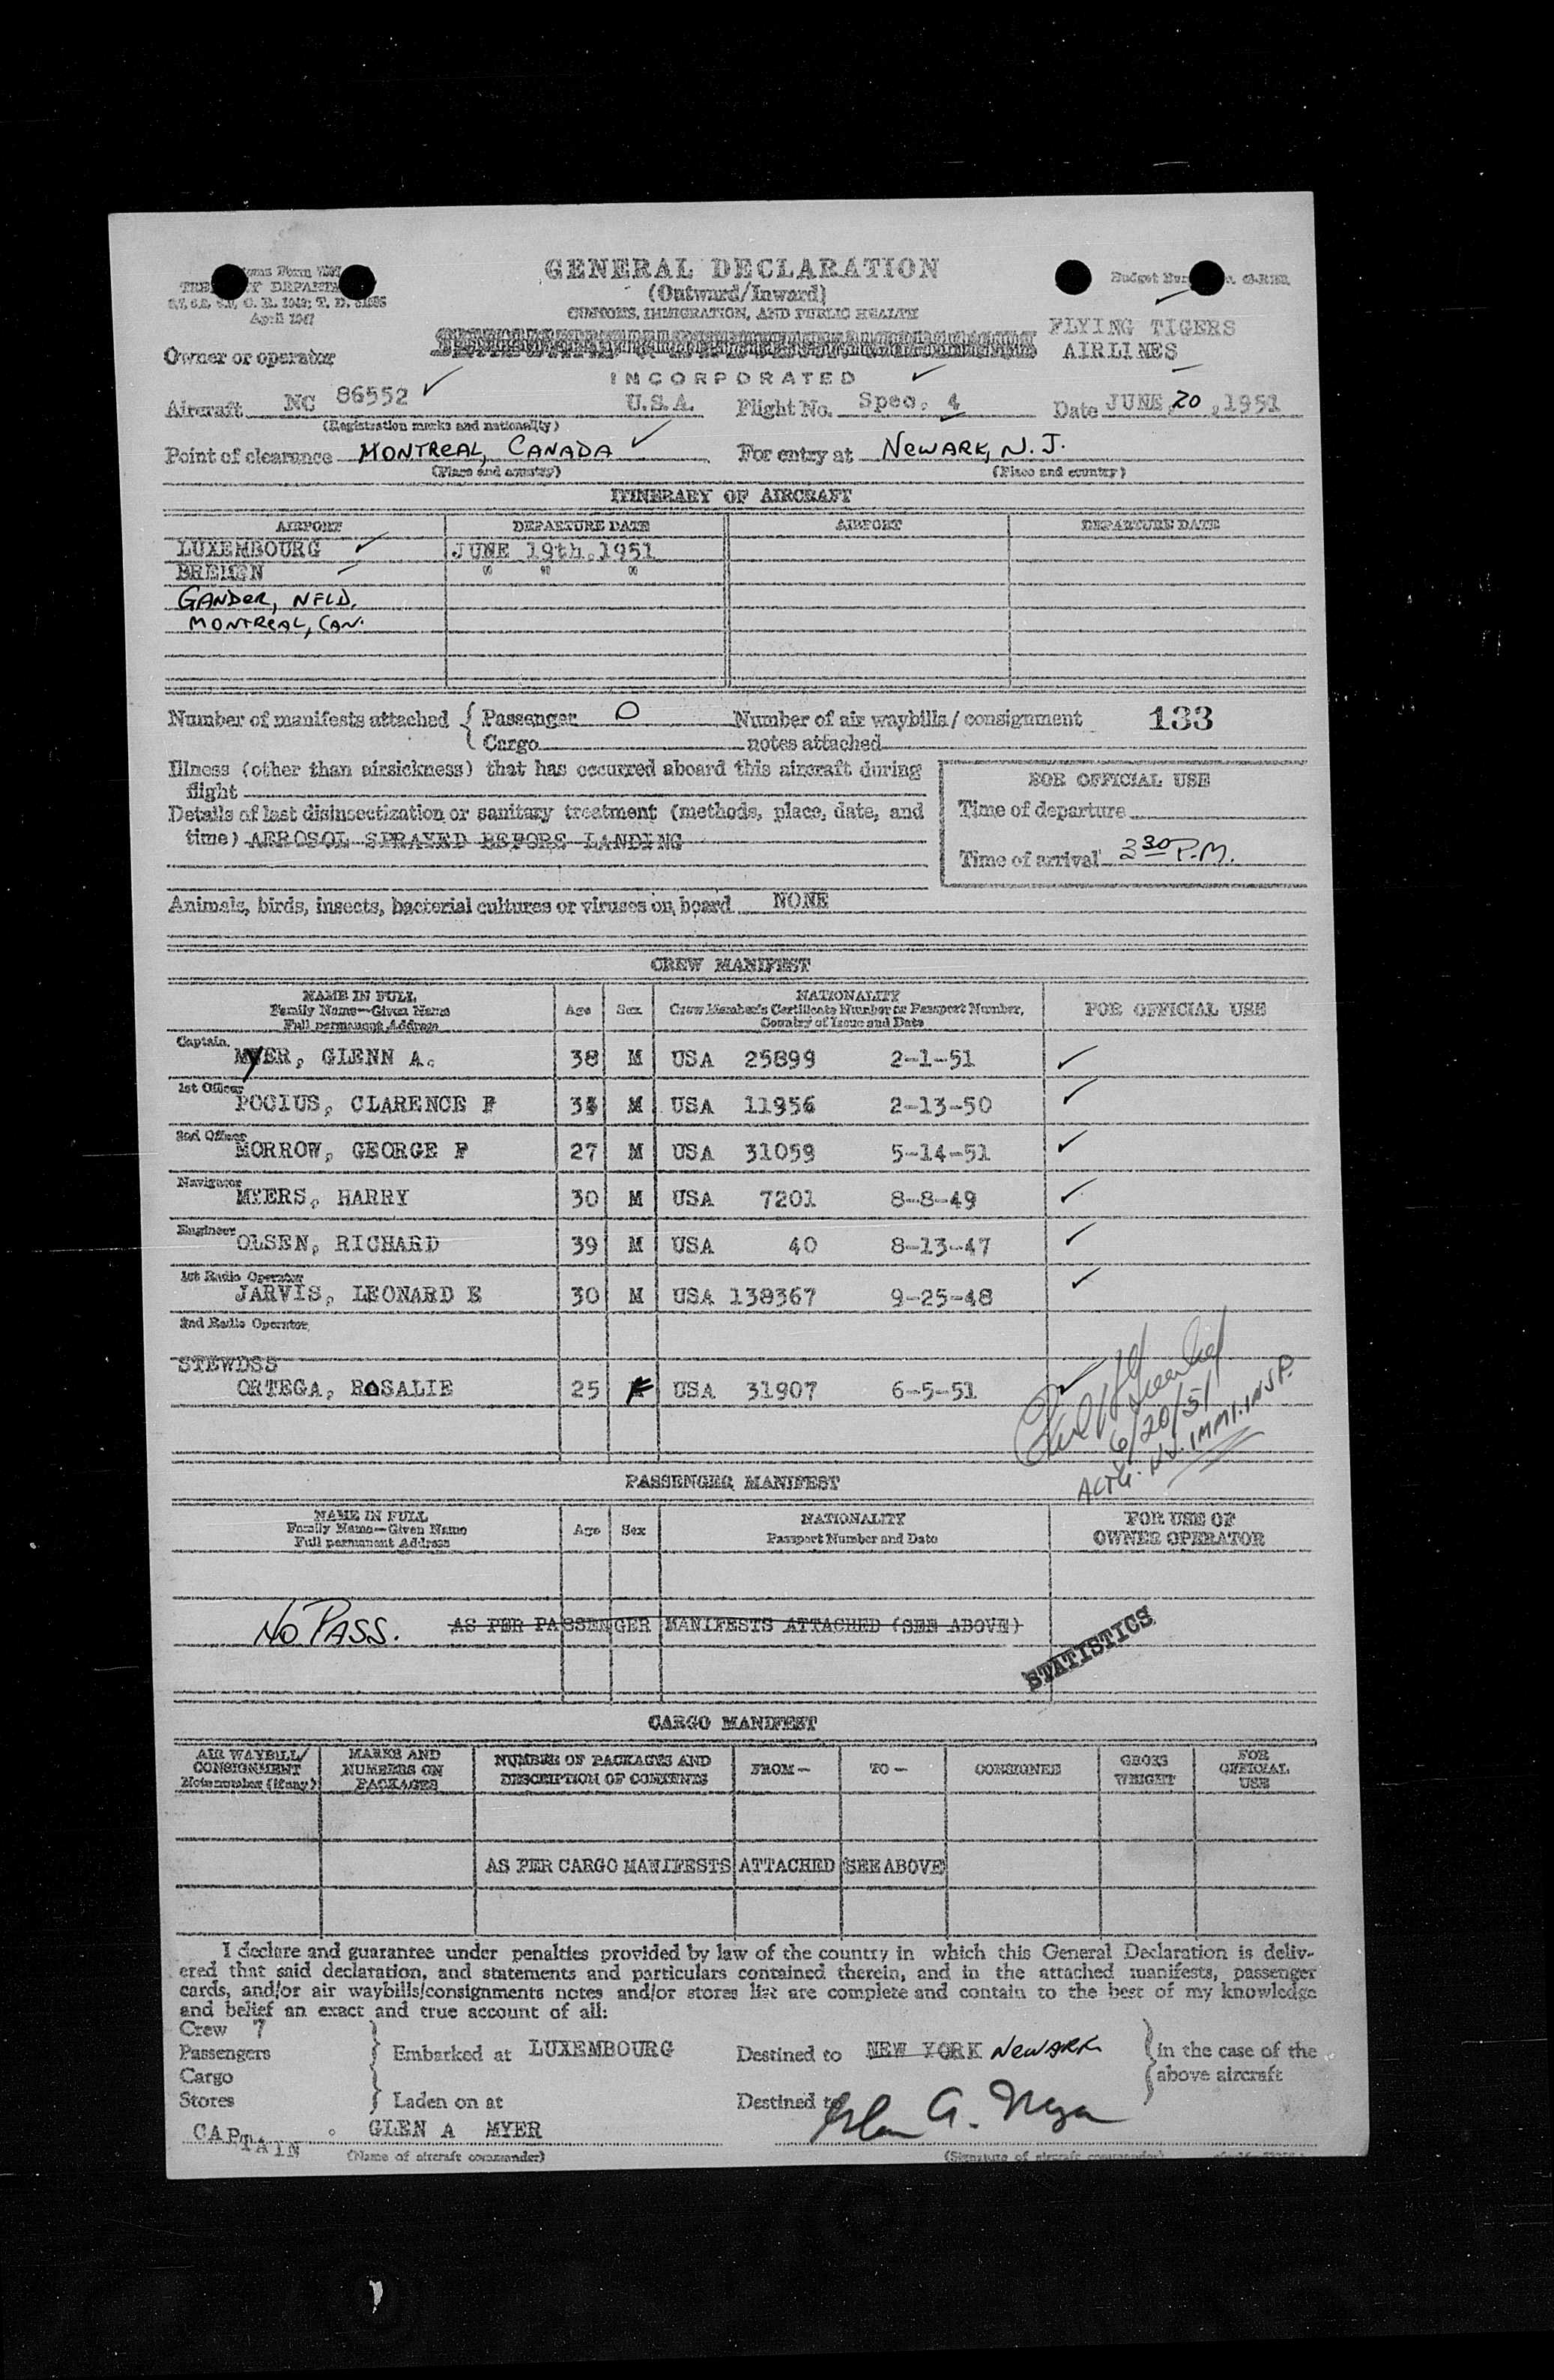 GENERAL DECLARATION
(Outward/Inward)
CUSTOMS, IMMIGRATION, AND PUBLIC HEALTH
April 1947
FLYING TIGERS
AIRLINES
Owner or operator
INCORPORATED
Aircraft NC 86552 U.S.A. Flight No. Spec. 4 Date JUNE 20, 1951
(Registration marks and nationality)
Point of clearance MONTREAL, CANADA For entry at NEWARK, N.J.
(Place and country) (Place and country)
ITINERARY OF AIRCRAFT
AIRPORT DEPARTURE DATE AIRPORT DEPARTURE DATE
LUXEMBOURG JUNE 19th.1951
BREMEN " " "
GANDER, NFLD.
MONTREAL, CAN.
Number of manifests attached { Passenger 0 Number of air waybills/consignment 133
Cargo notes attached
Illness (other than airsickness) that has occurred aboard this aircraft during
flight
FOR OFFICIAL USE
Details of last disinsectization or sanitary treatment (methods, place, date, and
time) AEROSOL SPRAYED BEFORE LANDING
Time of departure
Time of arrival 3 30 P.M.
Animals, birds, insects, bacterial cultures or viruses on board NONE
CREW MANIFEST
NAME IN FULL
Family Name—Given Name
Full permanent Address
Age Sex
NATIONALITY
Crew Member's Certificate Number or Passport Number,
Country of Issue and Date
FOR OFFICIAL USE
Captain
MYER, GLENN A. 38 M USA 25899 2-1-51
1st Officer
POCIUS, CLARENCE F M USA 11956 2-13-50
2nd Officer
MORROW, GEORGE F 27 M USA 31059 5-14-51
Navigator
MYERS, HARRY 30 M USA 7201 8-8-49
Engineer
OLSEN, RICHARD 39 M USA 40 8-13-47
1st Radio Operator
JARVIS, LEONARD E 30 M USA 138367 9-25-48
2nd Radio Operator
STEWDSS
ORTEGA, ROSALIE 25 F USA 31907 6-5-51
6/20/51
ACTG. N.Y. IMMI. INSP.
PASSENGER MANIFEST
NAME IN FULL
Family Name—Given Name
Full permanent Address
Age Sex
NATIONALITY
Passport Number and Date
FOR USE OF
OWNER OPERATOR
NO PASS. AS PER PASSENGER MANIFESTS ATTACHED (SEE ABOVE)
STATISTICS
CARGO MANIFEST
AIR WAYBILL/
CONSIGNMENT
Note number (if any)
MARKS AND
NUMBERS ON
PACKAGES
NUMBER OF PACKAGES AND
DESCRIPTION OF CONTENTS
FROM— TO— CONSIGNEE
GROSS
WEIGHT
FOR
OFFICIAL
USE
AS PER CARGO MANIFESTS ATTACHED SEE ABOVE
I declare and guarantee under penalties provided by law of the country in which this General Declaration is deliv-
ered that said declaration, and statements and particulars contained therein, and in the attached manifests, passenger
cards, and/or air waybills/consignments notes and/or stores list are complete and contain to the best of my knowledge
and belief an exact and true account of all:
Crew 7
Passengers } Embarked at LUXEMBOURG Destined to NEW YORK NEWARK } in the case of the
Cargo above aircraft
Stores } Laden on at Destined to
CAPTAIN GLEN A MYER Glen A. Myer
(Name of aircraft commander) (Signature of aircraft commander)